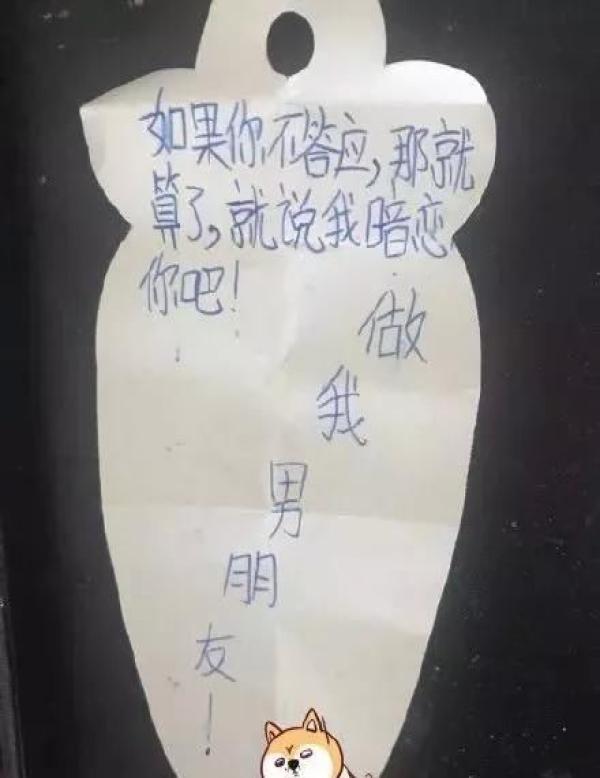 如果你不答应,那就
算了,就说我暗恋
你吧!
做
我
男
朋
友
!